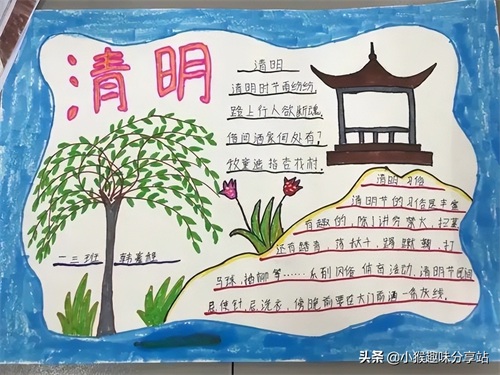 清明
清明
清明时节雨纷纷,
路上行人欲断魂.
借问酒家何处有?
牧童遥指杏花村.
清明习俗
清明节的习俗是丰富
有趣的,除了讲究禁火、扫墓
还有踏青、荡秋千、蹴鞠、打
马球、插柳等……系列风俗体育活动.清明节民间
忌使针,忌洗衣,傍晚前要在大门前洒一条灰线.
一三班
头条 @小猴趣味分享站